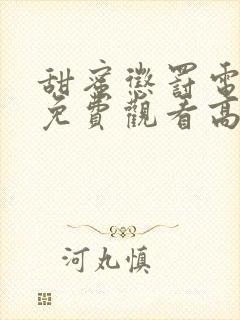 甜蜜懲罰電
免費觀看高
河丸慎